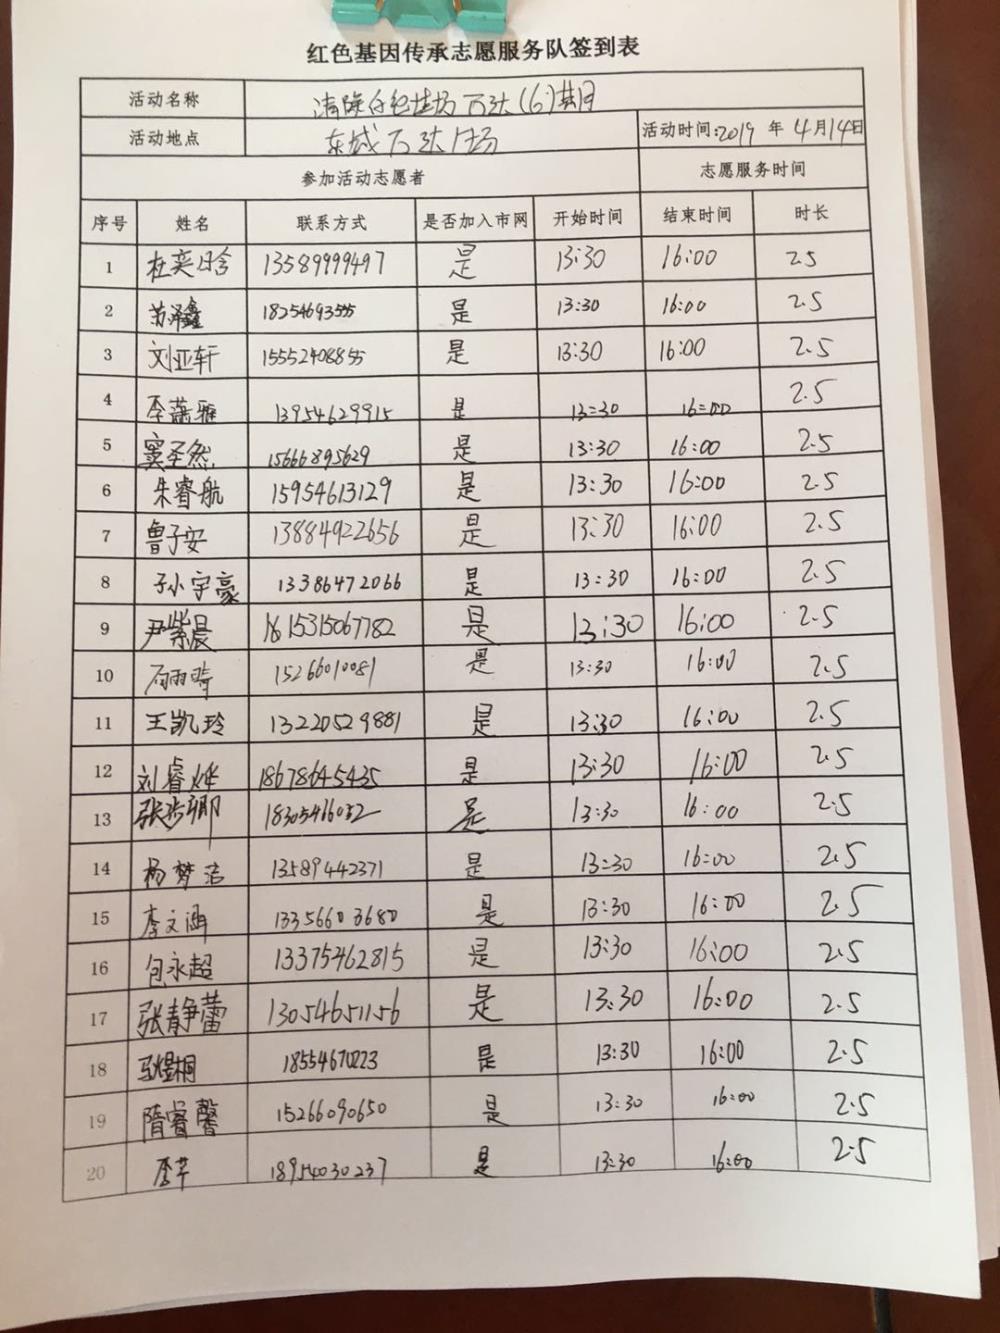 红色基因传承志愿服务队签到表
活动名称 清除 万达(6)
活动地点 东城万达广场 活动时间:2019年4月14日
参加活动志愿者 志愿服务时间
序号 姓名 联系方式 是否加入市网 开始时间 结束时间 时长
1 杜奕晗 13589999497 是 13:30 16:00 2.5
2 苏泽鑫 18254693555 是 13:30 16:00 2.5
3 刘亚轩 15552408855 是 13:30 16:00 2.5
4 李潇雅 13954629915 是 13:30 16:00 2.5
5 窦圣然 15666895629 是 13:30 16:00 2.5
6 朱睿航 15954613129 是 13:30 16:00 2.5
7 鲁子安 13884922656 是 13:30 16:00 2.5
8 孙宇豪 13386472066 是 13:30 16:00 2.5
9 尹紫晨 15315067782 是 13:30 16:00 2.5
10 石雨晴 15266010081 是 13:30 16:00 2.5
11 王凯玲 13220529881 是 13:30 16:00 2.5
12 刘睿烨 18678645435 是 13:30 16:00 2.5
13 18305466052 是 13:30 16:00 2.5
14 杨梦洁 13589442371 是 13:30 16:00 2.5
15 李文涵 13356603680 是 13:30 16:00 2.5
16 包永超 13375462815 是 13:30 16:00 2.5
17 张静蕾 13054651156 是 13:30 16:00 2.5
18 马煜桐 18554670223 是 13:30 16:00 2.5
19 隋睿馨 15266090650 是 13:30 16:00 2.5
20 李芊 18954030237 是 13:30 16:00 2.5